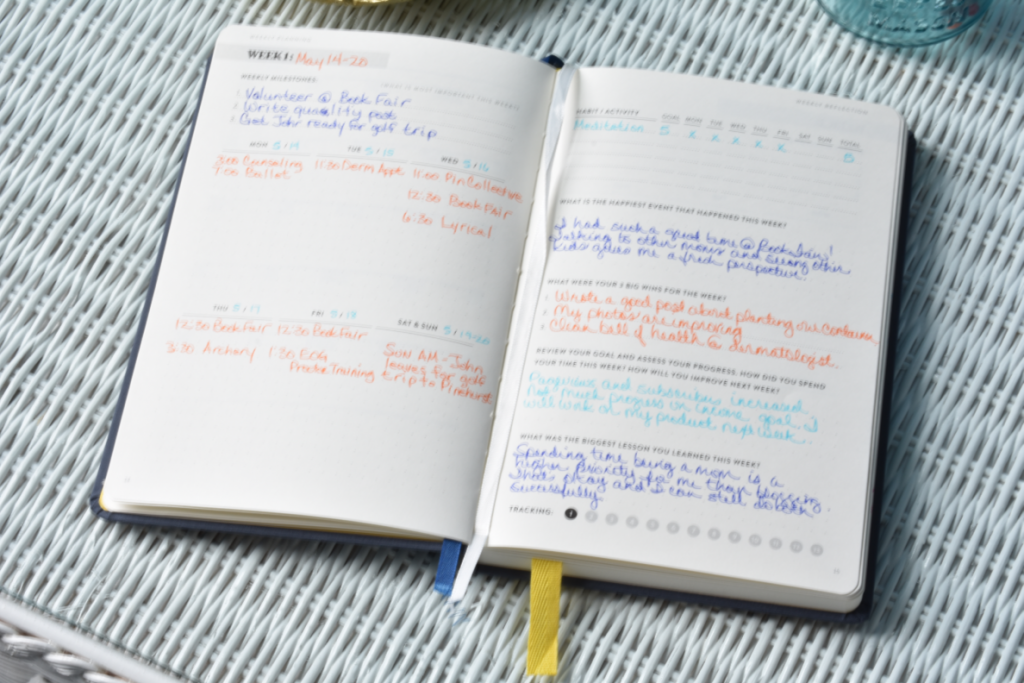 WEEKLY PLANNING
WEEK 1: May 14-20
WEEKLY MILESTONES
(WHAT IS MOST IMPORTANT THIS WEEK?)
1. Volunteer @ Book Fair
2. Write quality post
3. Get John ready for golf trip
MON 5/14
TUE 5/15
WED 5/16
3:00 Counseling
7:00 Ballet
11:30 Derm Appt
11:00 Pin Collectors
12:30 Book Fair
6:30 Lyrical
THU 5/17
FRI 5/18
SAT & SUN 5/19-20
12:30 Book Fair
3:30 Archery
12:30 Book Fair
1:30 EOG
Proctor Training
Sun AM - John
leaves for golf
trip to Pinehurst
WEEKLY REFLECTION
HABIT / ACTIVITY GOAL MON TUE WED THU FRI SAT SUN TOTAL
Meditation 5 x x x x x 5
WHAT IS THE HAPPIEST EVENT THAT HAPPENED THIS WEEK?
I had such a great time @ Book Fair!
Talking to other moms and seeing other
kids gives me a fresh perspective.
WHAT WERE YOUR 3 BIG WINS FOR THE WEEK?
1. Wrote a good post about planting our containers
2. My photos are improving
3. Clean bill of health @ dermatologist
REVIEW YOUR GOAL AND ASSESS YOUR PROGRESS. HOW DID YOU SPEND
YOUR TIME THIS WEEK? HOW WILL YOU IMPROVE NEXT WEEK?
Pageviews and subscribers increased.
Not much progress on income goal. I
will work on my product next week.
WHAT WAS THE BIGGEST LESSON YOU LEARNED THIS WEEK?
Spending time being a mom is a
higher priority for me than blogging.
That's okay and I can still do both
successfully.
TRACKING: 1 2 3 4 5 6 7 8 9 10 11 12 13